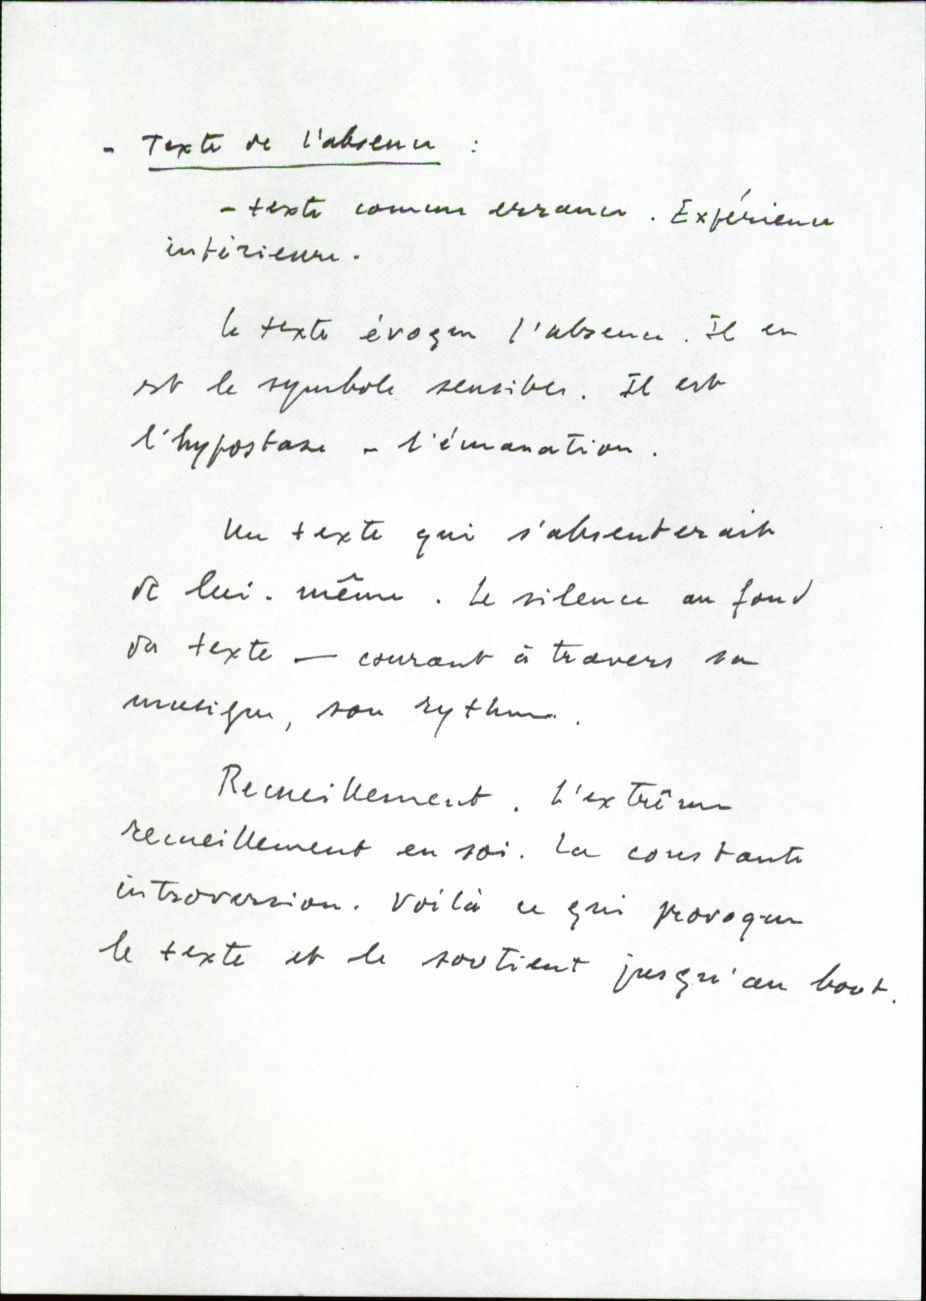 - Texte de l'absence :
- texte comme errance. Expérience
intérieure.
Le texte évoque l'absence. Il en
est le symbole sensible. Il est
l'hypostase - l'émanation.
Un texte qui s'absenterait
de lui-même. Le silence au fond
du texte — courant à travers sa
musique, son rythme.
Recueillement. L'extrême
recueillement en soi. La constante
introversion. Voilà ce qui provoque
le texte et le soutient jusqu'au bout.